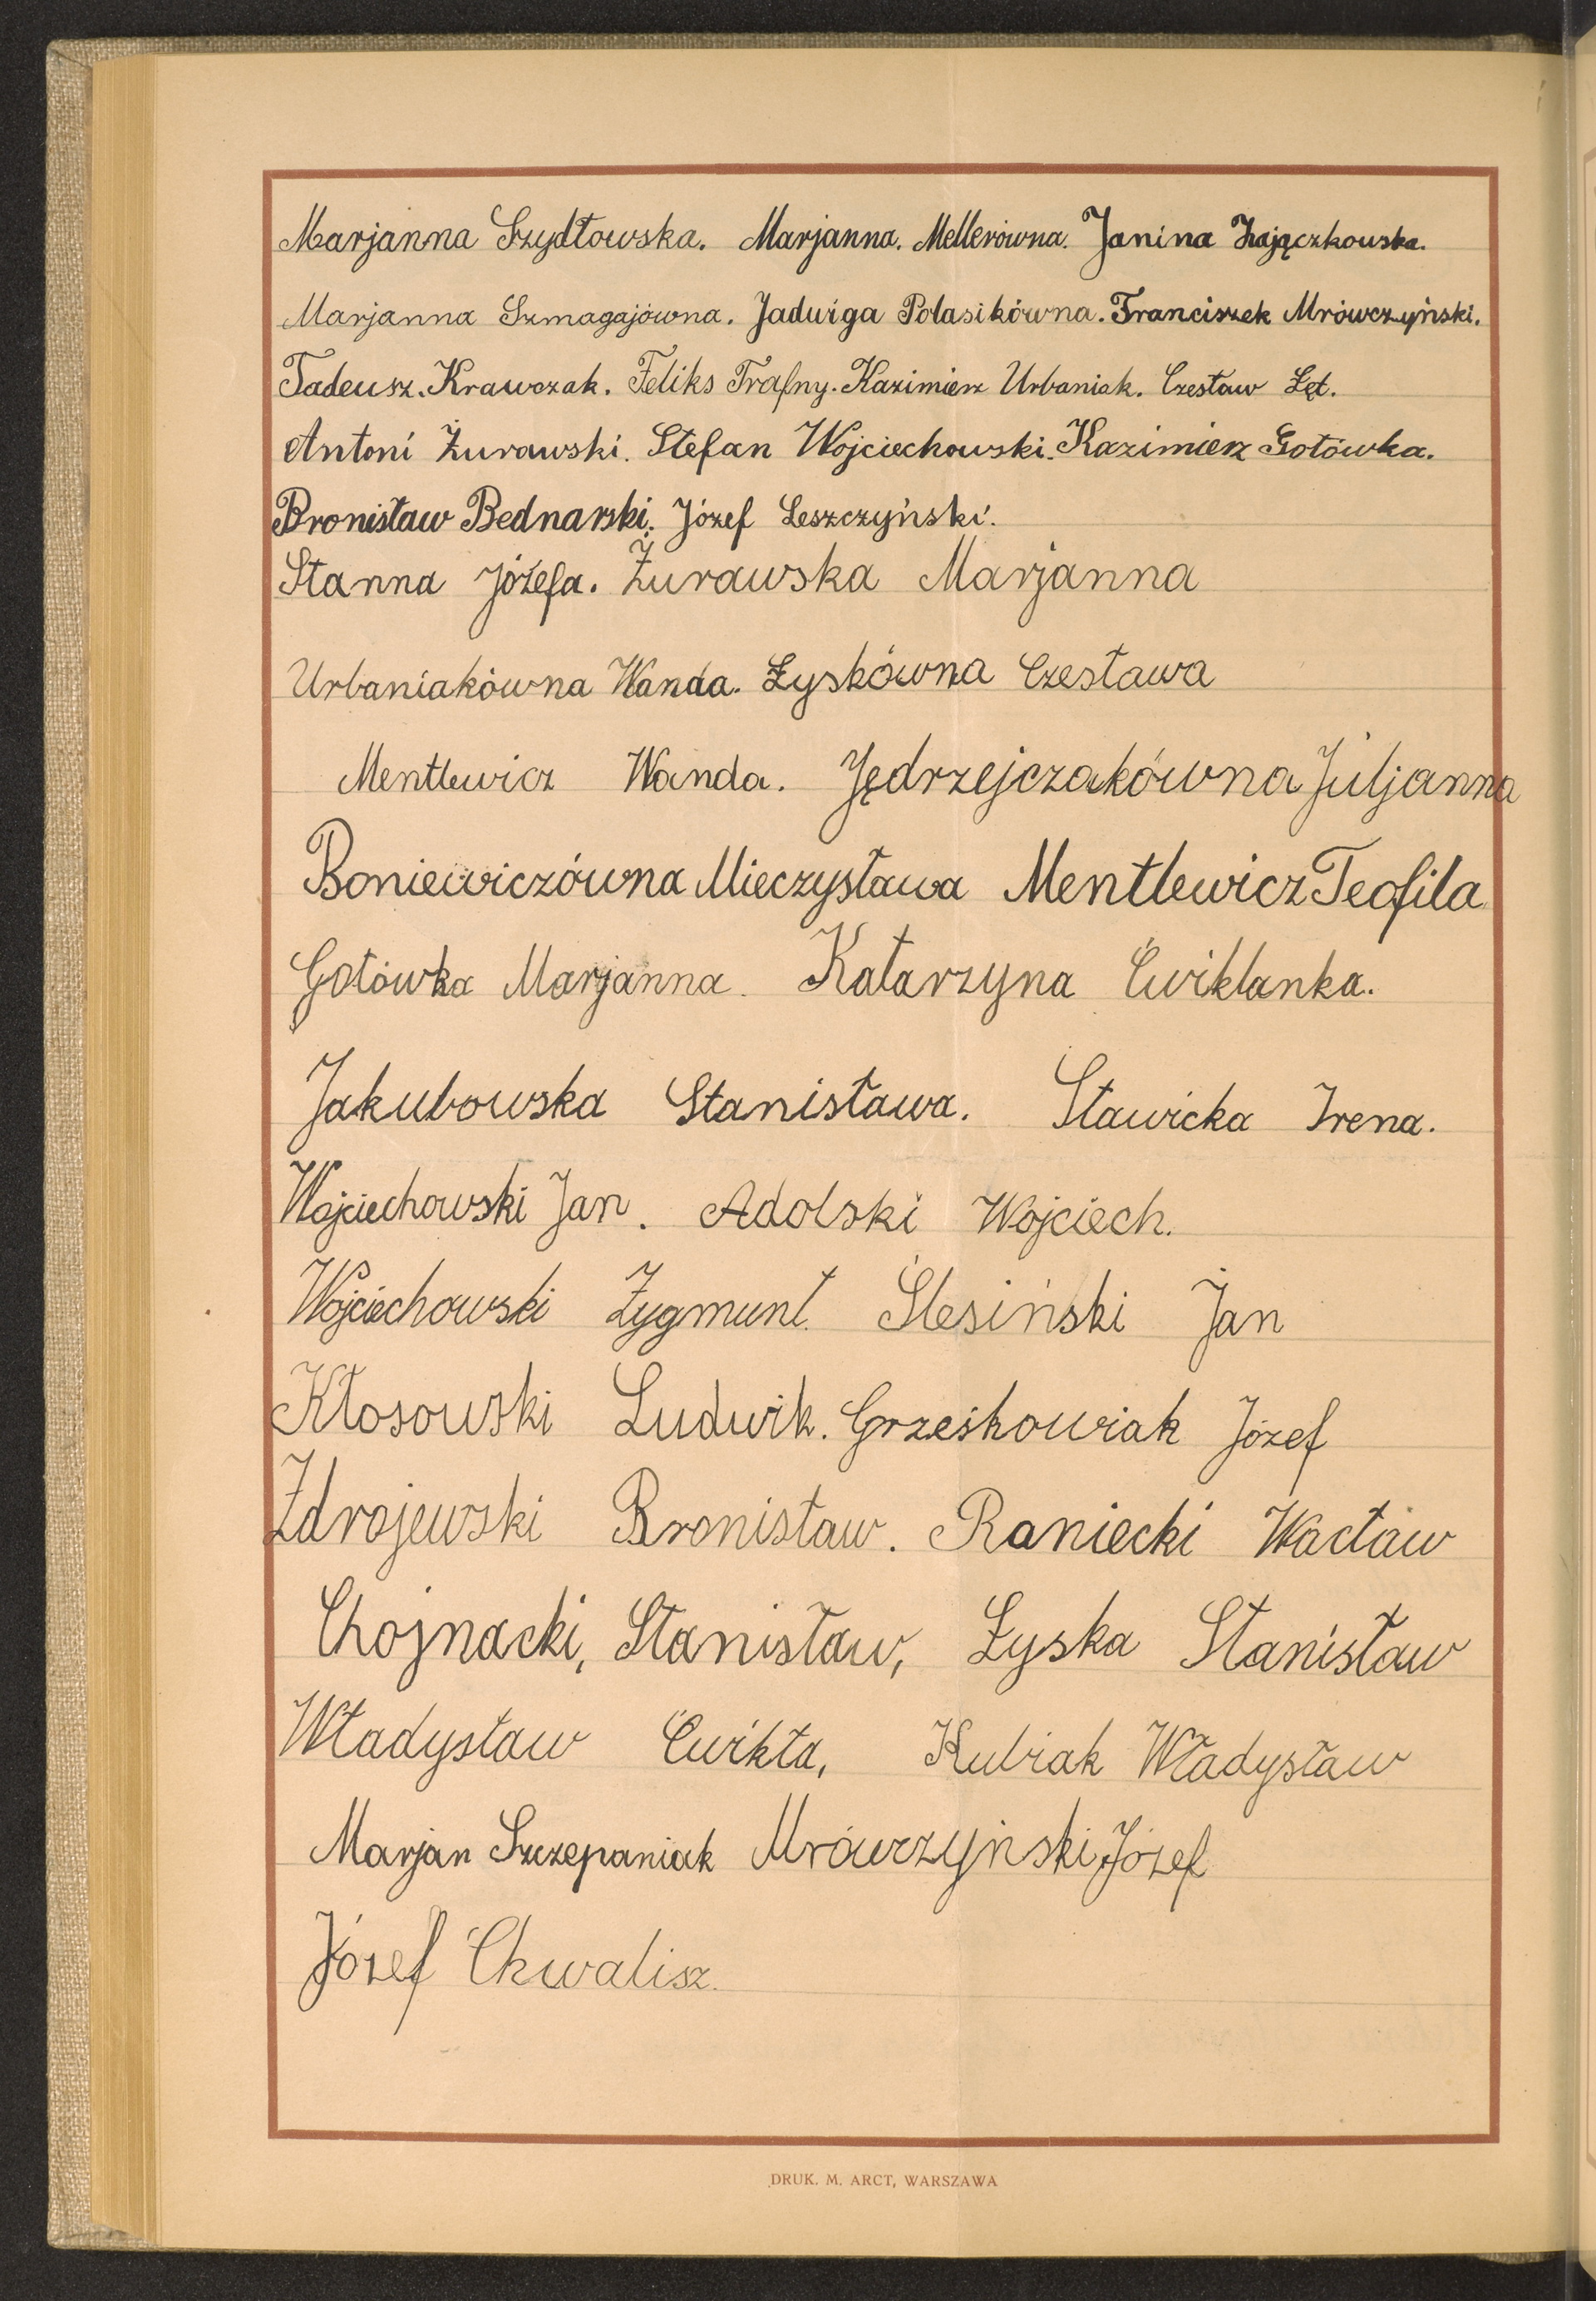 Marjanna Szydłowska. Marjanna. Mellerówna. Janina Zajączkowska.
Marjanna Szmagajówna. Jadwiga Polasikówna. Franciszek Mrówczyński.
Tadeusz. Krawczak. Feliks Trafny. Kazimierz Urbaniak. Czesław Łęt.
Antoni Żurawski. Stefan Wojciechowski. Kazimierz Gotówka.
Bronisław Bednarski. Józef Leszczyński.
Stanna Józefa. Żurawska Marjanna
Urbaniakówna Wanda. Łyskówna Czesława
Mentlewicz Wanda. Jędrzejczakówna Juljanna
Boniewiczówna Mieczysława Mentlewicz Teofila
Gotówka Marjanna. Katarzyna Ćwiklanka.
Jakubowska Stanisława. Sławicka Irena.
Wojciechowski Jan. Adolski Wojciech.
Wojciechowski Zygmunt. Ślesiński Jan
Kłosowski Ludwik. Grześkowiak Józef
Zdrojewski Bronisław. Raniecki Wacław
Chojnacki, Stanisław, Łyska Stanisław
Władysław Ćwikła, Kubiak Władysław
Marjan Szczepaniak Mrówczyński Józef
Józef Chwalisz.
DRUK. M. ARCT, WARSZAWA